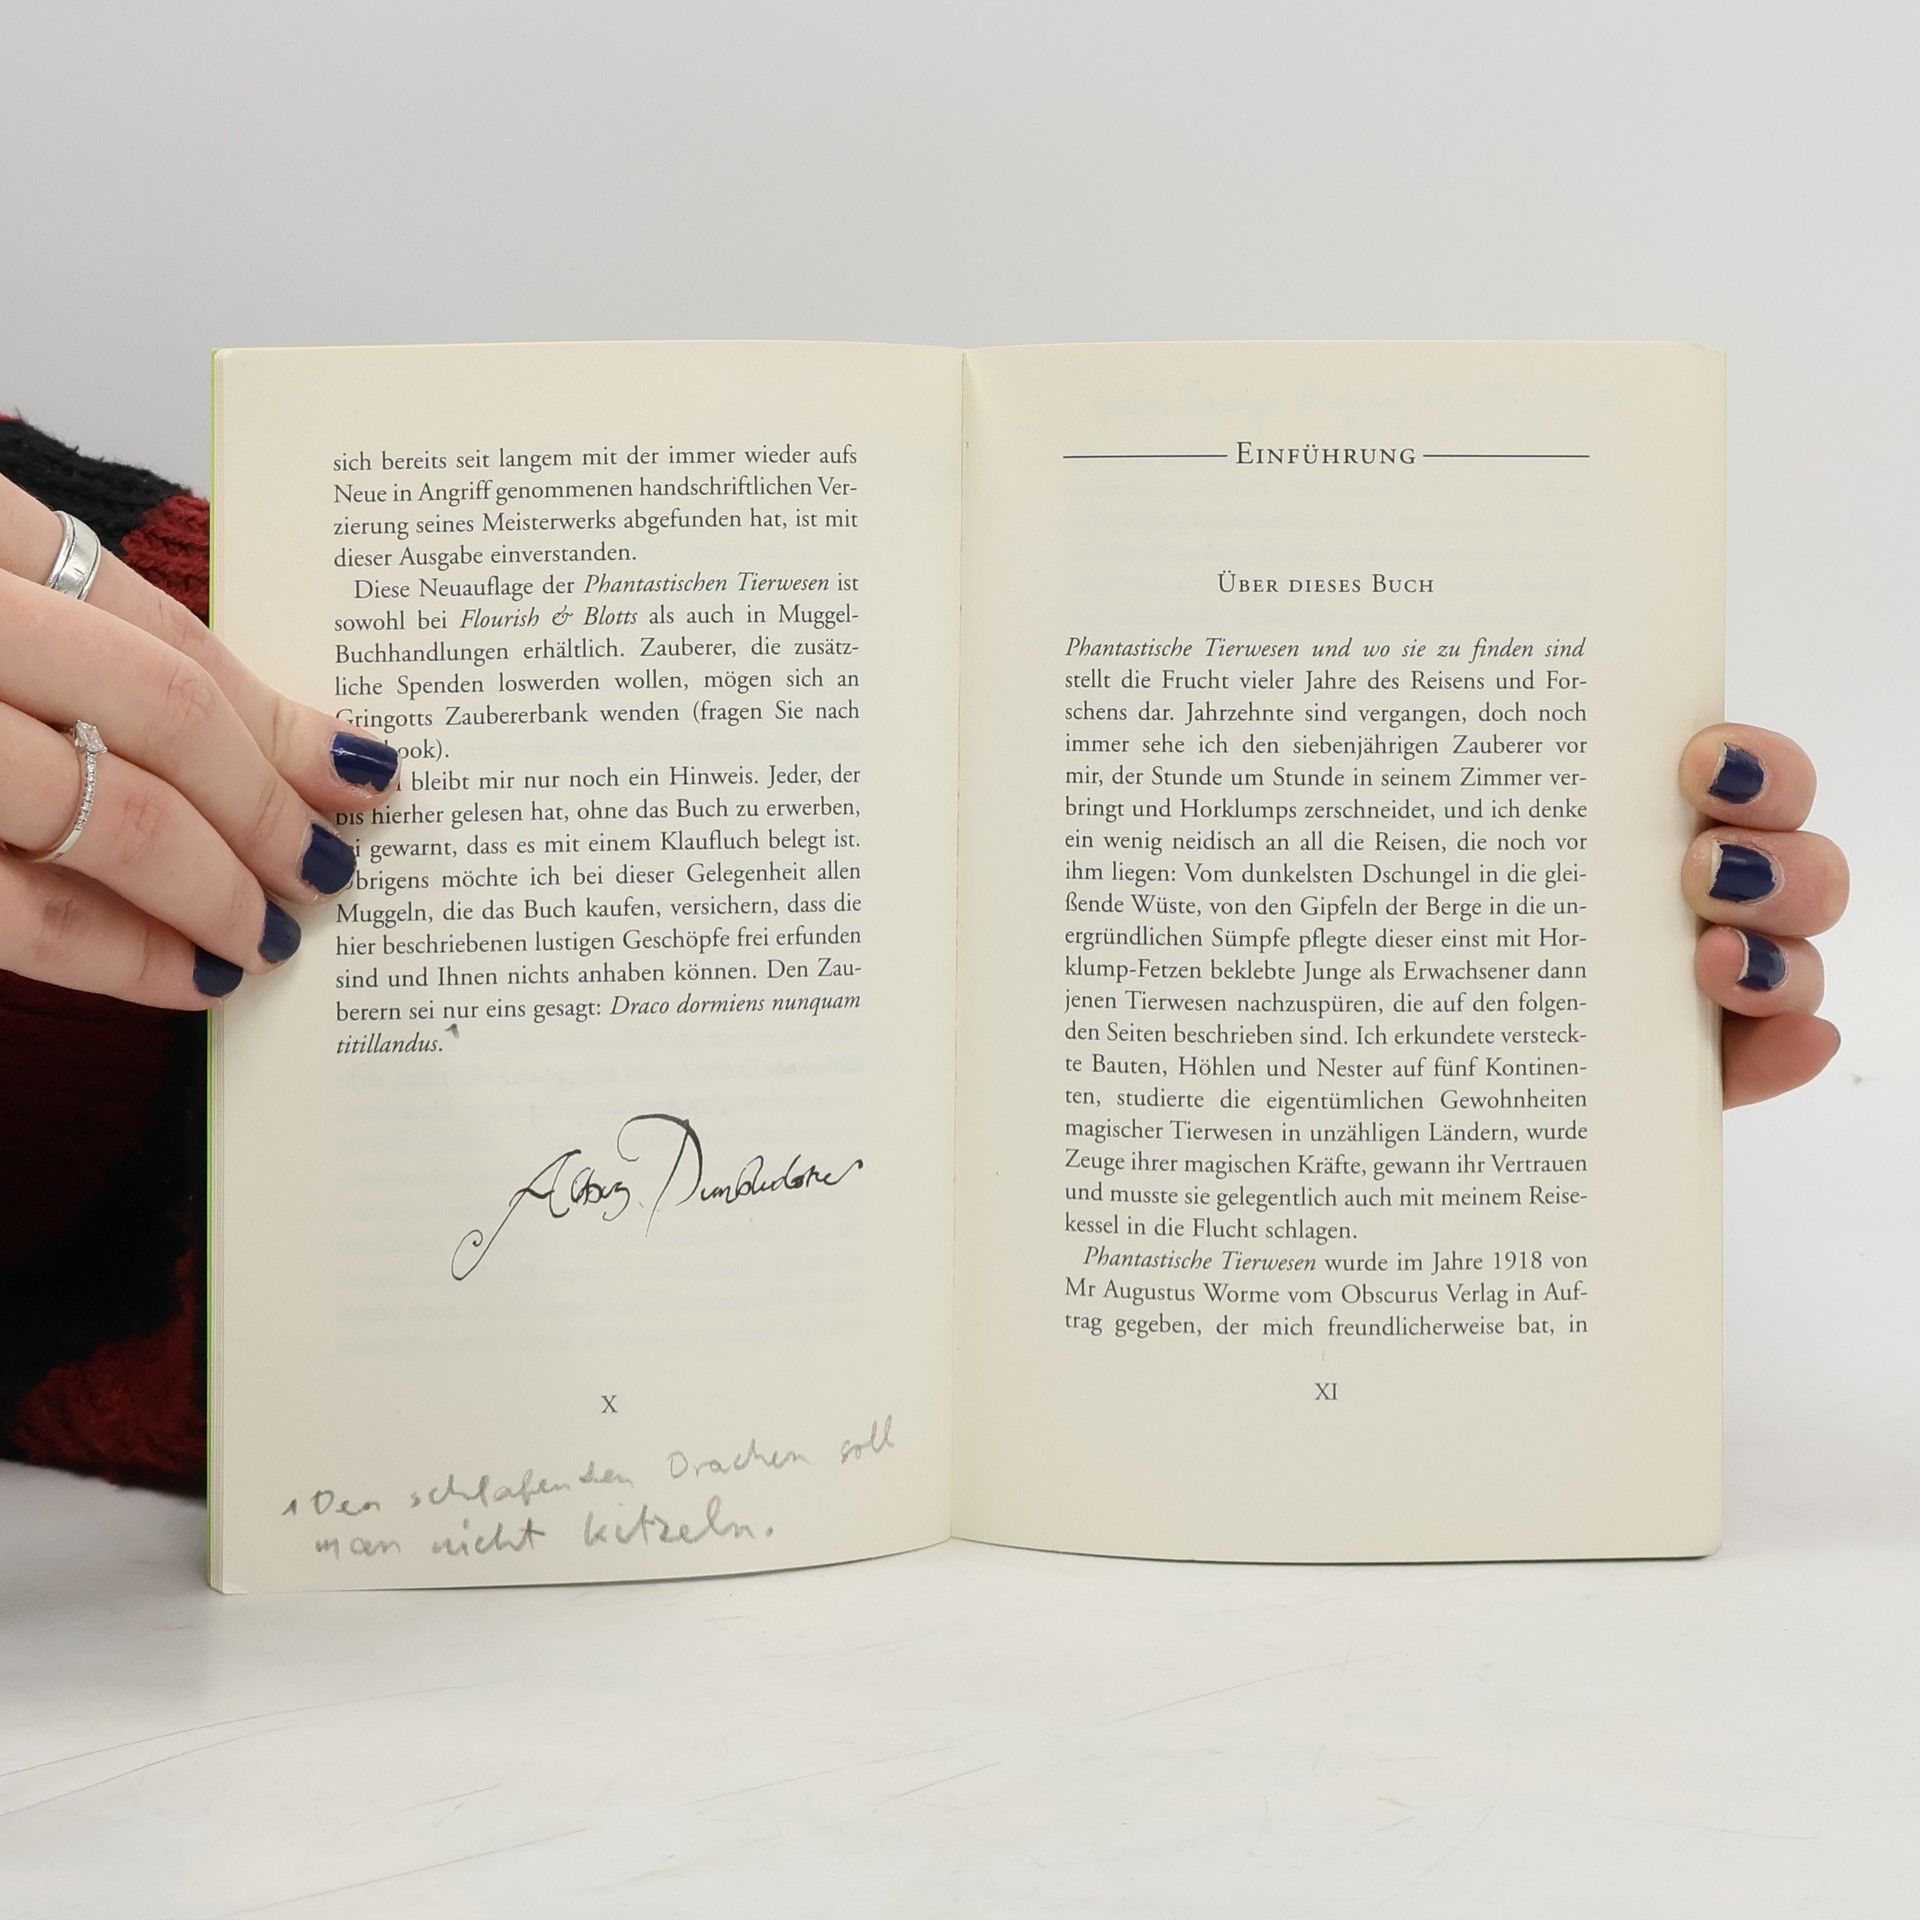 sich bereits seit langem mit der immer wieder aufs
Neue in Angriff genommenen handschriftlichen Ver-
zierung seines Meisterwerks abgefunden hat, ist mit
dieser Ausgabe einverstanden.
Diese Neuauflage der Phantastischen Tierwesen ist
sowohl bei Flourish & Blotts als auch in Muggel-
Buchhandlungen erhältlich. Zauberer, die zusätz-
liche Spenden loswerden wollen, mögen sich an
Gringotts Zaubererbank wenden (fragen Sie nach
ook).
bleibt mir nur noch ein Hinweis. Jeder, der
bis hierher gelesen hat, ohne das Buch zu erwerben,
i gewarnt, dass es mit einem Klaufluch belegt ist.
Übrigens möchte ich bei dieser Gelegenheit allen
Muggeln, die das Buch kaufen, versichern, dass die
hier beschriebenen lustigen Geschöpfe frei erfunden
sind und Ihnen nichts anhaben können. Den Zau-
berern sei nur eins gesagt: Draco dormiens nunquam
titillandus.1
Albus Dumbledore
X
1 Den schlafenden Drachen soll
man nicht kitzeln.
EINFÜHRUNG
ÜBER DIESES BUCH
Phantastische Tierwesen und wo sie zu finden sind
stellt die Frucht vieler Jahre des Reisens und For-
schens dar. Jahrzehnte sind vergangen, doch noch
immer sehe ich den siebenjährigen Zauberer vor
mir, der Stunde um Stunde in seinem Zimmer ver-
bringt und Horklumps zerschneidet, und ich denke
ein wenig neidisch an all die Reisen, die noch vor
ihm liegen: Vom dunkelsten Dschungel in die glei-
ßende Wüste, von den Gipfeln der Berge in die un-
ergründlichen Sümpfe pflegte dieser einst mit Hor-
klump-Fetzen beklebte Junge als Erwachsener dann
jenen Tierwesen nachzuspüren, die auf den folgen-
den Seiten beschrieben sind. Ich erkundete versteck-
te Bauten, Höhlen und Nester auf fünf Kontinen-
ten, studierte die eigentümlichen Gewohnheiten
magischer Tierwesen in unzähligen Ländern, wurde
Zeuge ihrer magischen Kräfte, gewann ihr Vertrauen
und musste sie gelegentlich auch mit meinem Reise-
kessel in die Flucht schlagen.
Phantastische Tierwesen wurde im Jahre 1918 von
Mr Augustus Worme vom Obscurus Verlag in Auf-
trag gegeben, der mich freundlicherweise bat, in
XI